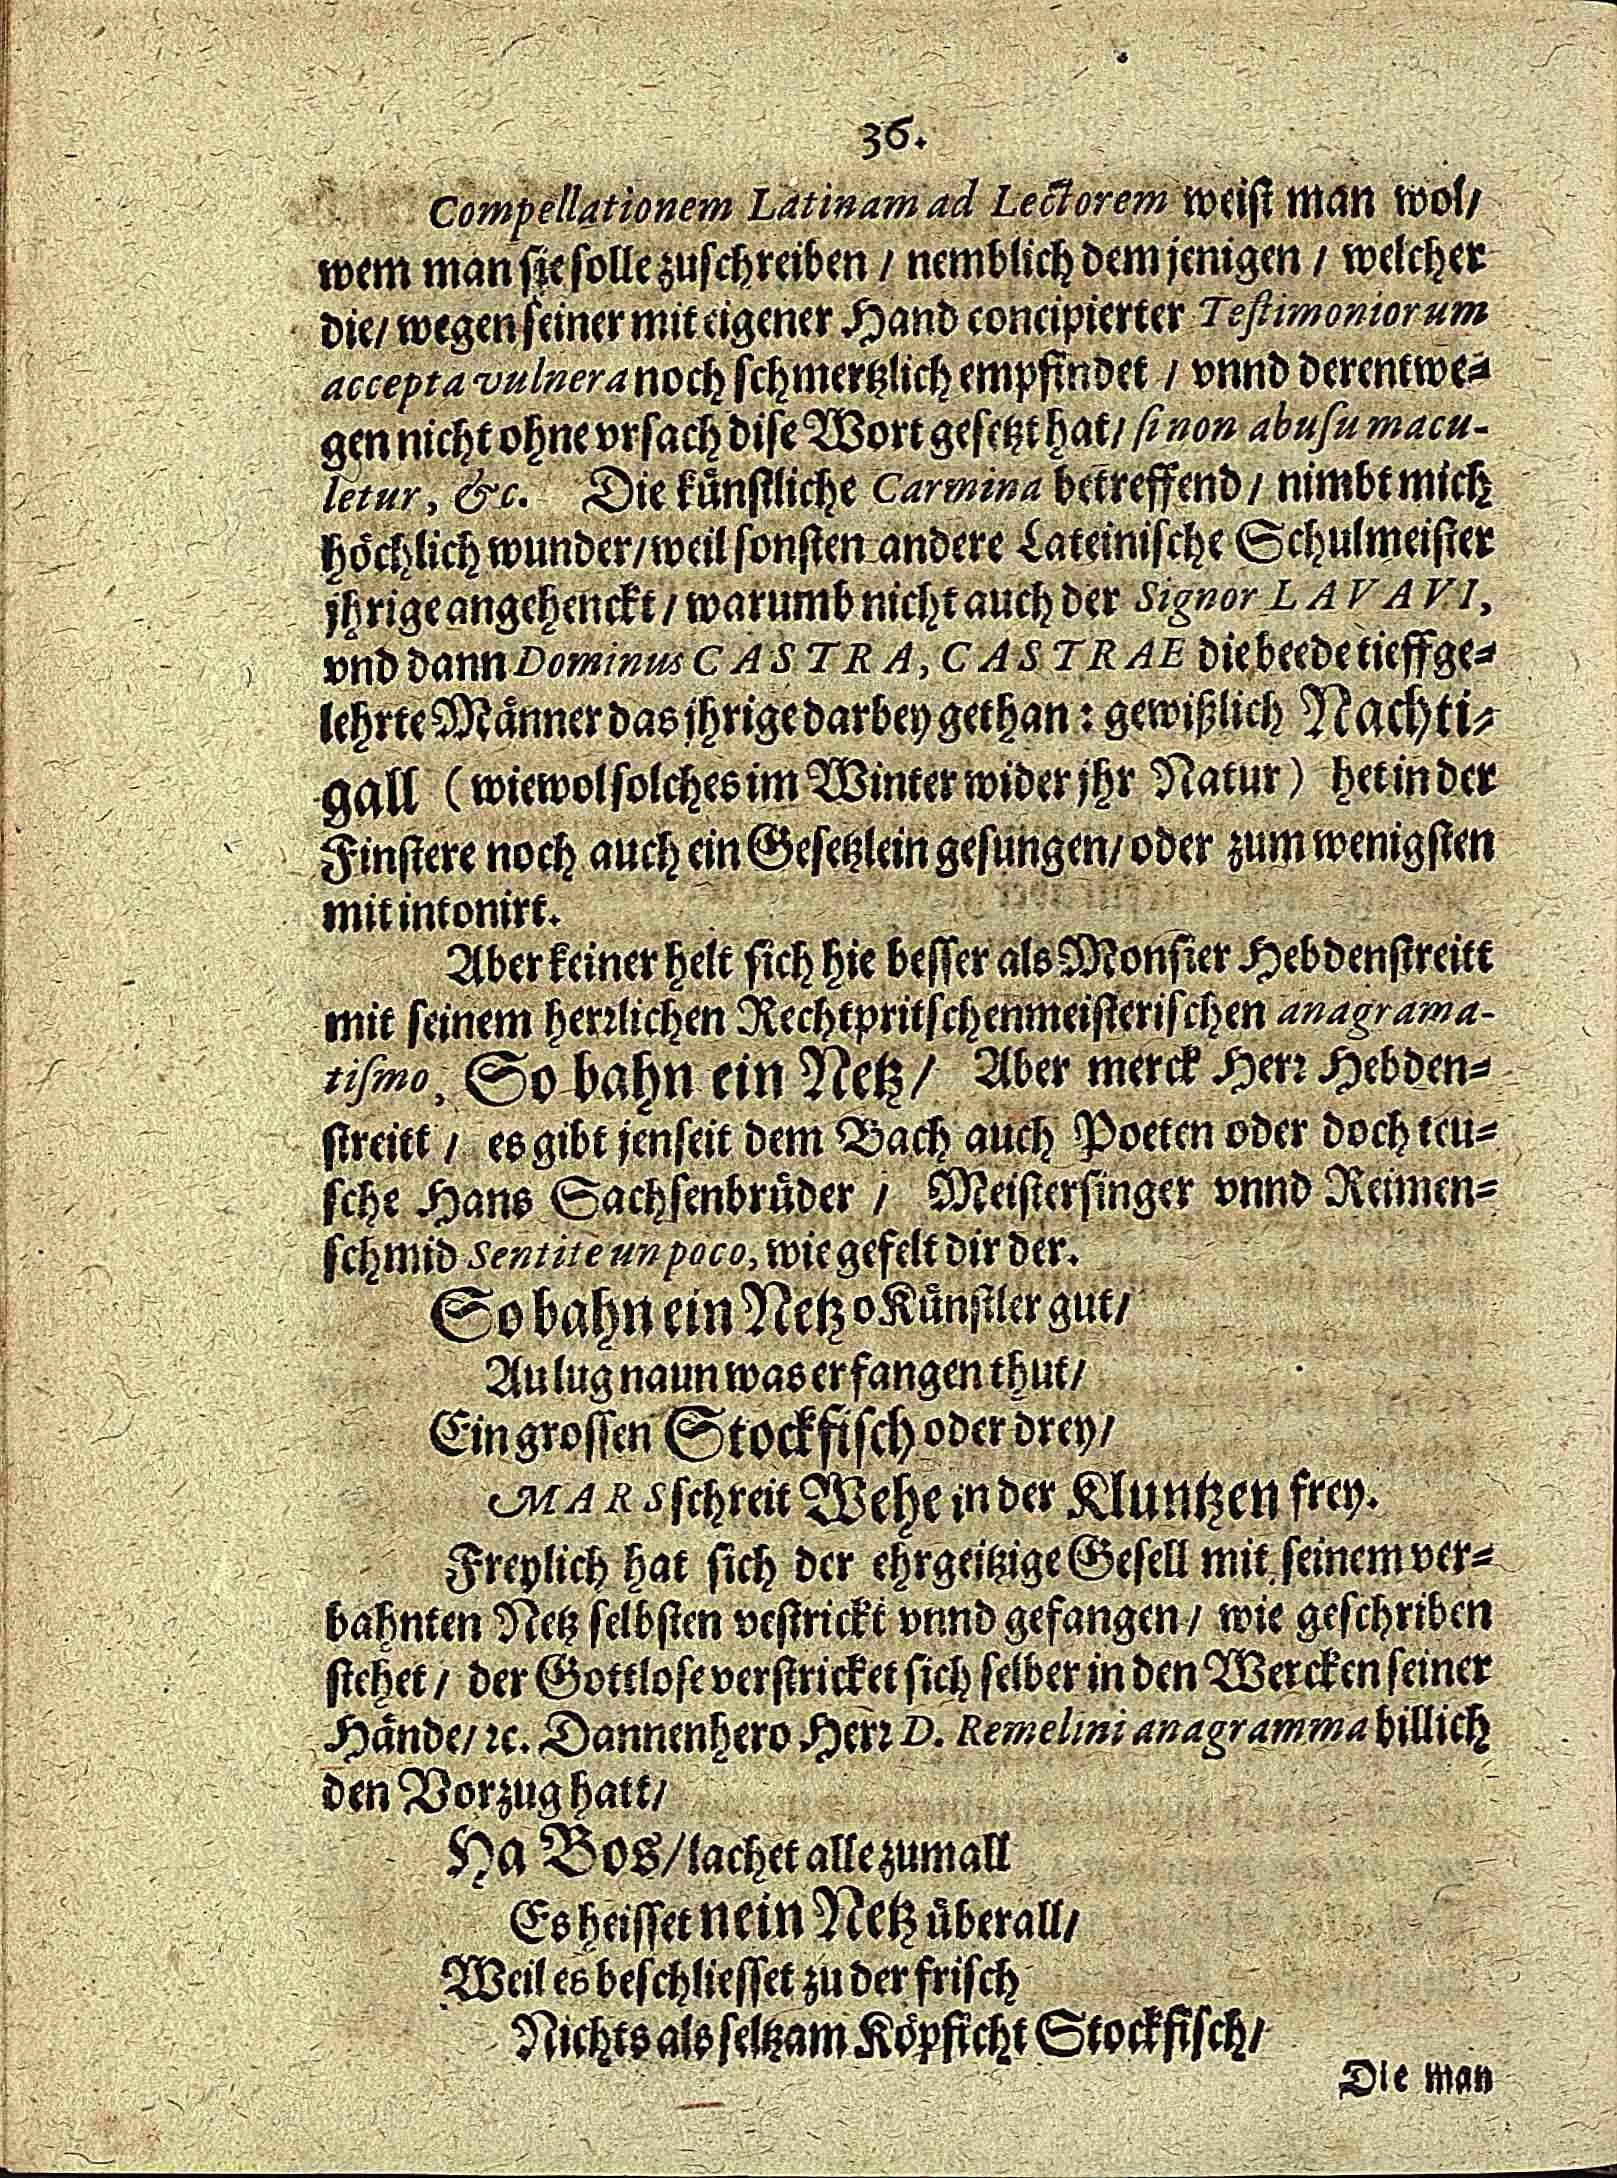 36.
Compellationem Latinam ad Lectorem weist man wol/
wem man sie solle zuschreiben / nemblich dem jenigen / welcher
die/ wegen seiner mit eigener Hand concipierter Testimoniorum
accepta vulnera noch schmertzlich empfindet / vnnd derentwe-
gen nicht ohne vrsach dise Wort gesetzt hat/ si non abusu macu-
letur, &c. Die künstliche Carmina betreffend / nimbt mich
höchlich wunder/ weil sonsten andere Lateinische Schulmeister
jhrige angehenckt / warumb nicht auch der Signor LAVAVI,
vnd dann Dominus CASTRA, CASTRAE die beede tieffge-
lehrte Männer das jhrige darbey gethan: gewißlich Nachti-
gall (wiewol solches im Winter wider jhr Natur) het in der
Finstere noch auch ein Gesetzlein gesungen/ oder zum wenigsten
mit intonirt.
Aber keiner helt sich hie besser als Monsier Hebdenstreitt
mit seinem herrlichen Rechtpritschenmeisterischen anagrama-
tismo, So bahn ein Netz / Aber merck Herr Hebden-
streitt / es gibt jenseit dem Bach auch Poeten oder doch teu-
sche Hans Sachsenbrüder / Meistersinger vnnd Reimen-
schmid Sentite un poco, wie gefelt dir der.
So bahn ein Netz o Künstler gut/
Au lug naun was er fangen thut/
Ein grossen Stockfisch oder drey/
MARS schreit Wehe in der Kluntzen frey.
Freylich hat sich der ehrgeitzige Gesell mit seinem ver-
bahnten Netz selbsten vestrickt vnnd gefangen / wie geschriben
stehet / der Gottlose verstricket sich selber in den Wercken seiner
Hände/ ꝛc. Dannenhero Herr D. Remelini anagramma billich
den Vorzug hatt/
Ha Bos/ lachet alle zumall
Es heisset nein Netz überall/
Weil es beschliesset zu der frisch
Nichts als seltzam Köpficht Stockfisch/
Die man